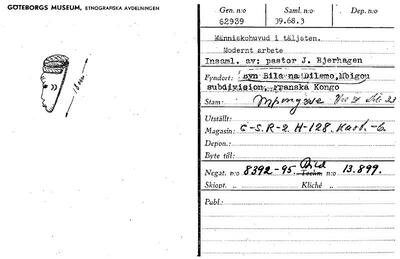 GÖTEBORGS MUSEUM, ETNOGRAFISKA AVDELNINGEN
18 cm
Gen. n:o Saml. n:o Dep. n:o
62939 39.68.3
Människohuvud i täljsten.
Modernt arbete
Insaml. av: pastor J. Bjerhagen
Fyndort: byn Bila na Dilemo, Mbigou
subdivision, franska Kongo
Stam:
Utställt:
Magasin: C-S.R-2. H-128.
Depon.:
Byte till:
Negat. n:o 8392-95 Bild n:o 13.899.
Skiopt. „ Kliché „
Publ.: